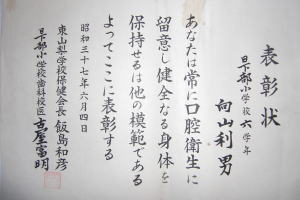 表彰状
日下部小学校六学年
向山利男
あなたは常に口腔衛生に
留意し健全なる身体を
保持せるは他の模範である
よってここに表彰する
昭和三十七年六月四日
東山梨学校保健会長 飯島和彦
日下部小学校歯科校医 古屋富明